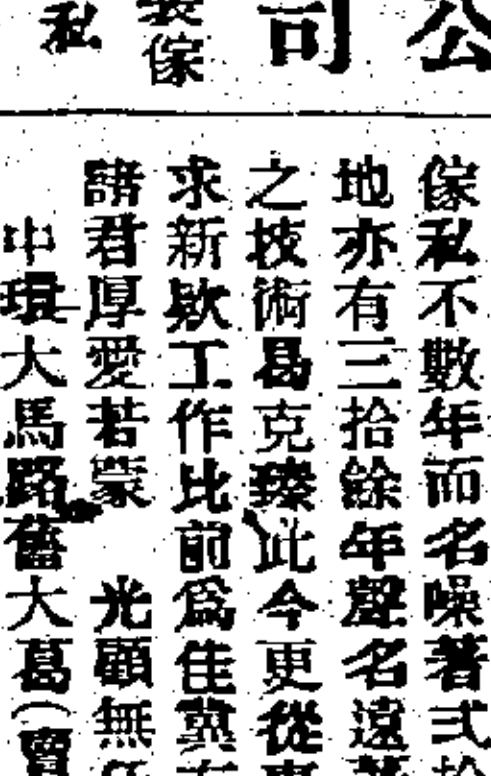 公
司
裝傢
私
傢私不數年而名噪著弍拾
地亦有三拾餘年聲名遠
之技術曷克臻此今更從
求新欵工作比前爲佳冀
諸君厚愛若蒙　光顧無任
中環大馬路舊大葛(賣